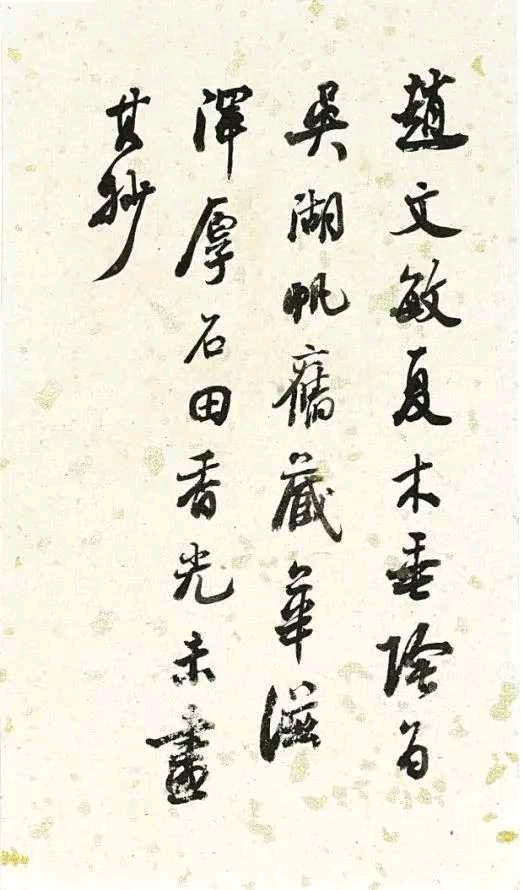 趙文敏夏木垂陰為
吳湖帆舊藏華滋
渾厚石田香光未盡
其妙